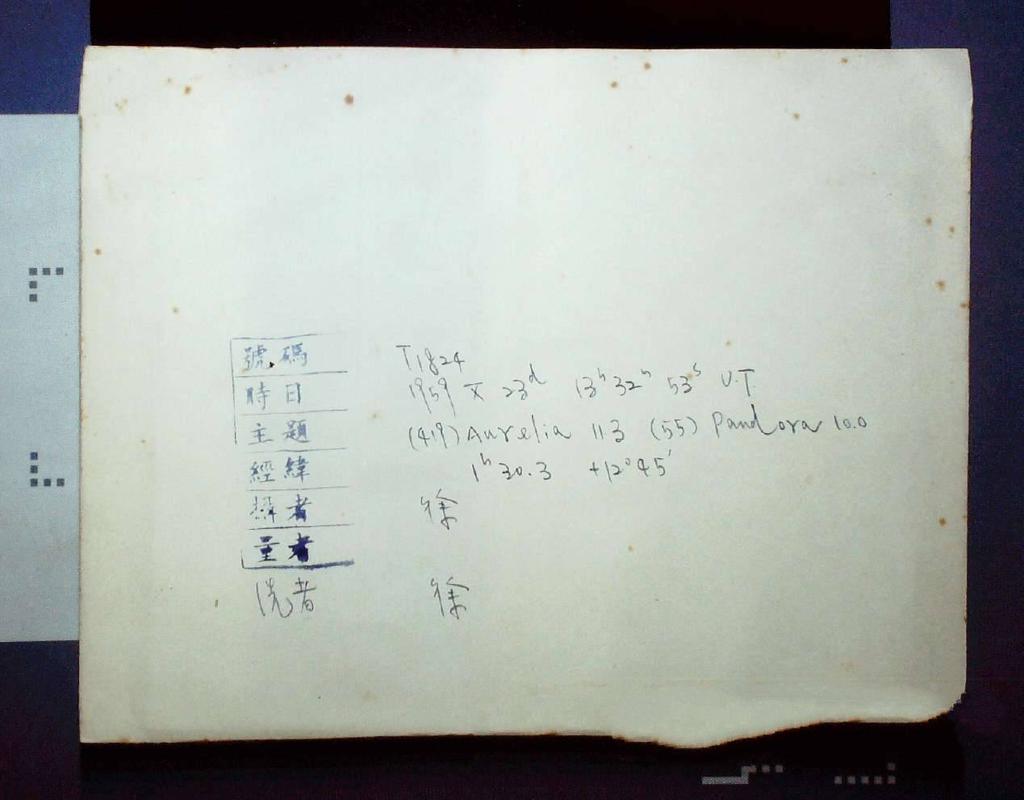 號碼 T1824
時日 1959 X 23d 13h 32m 53s U.T
主題 (419) Aurelia 11.3 (55) Pandora 10.0
經緯 1h 30.3 +12°45'
攝者 徐
量者
洗者 徐